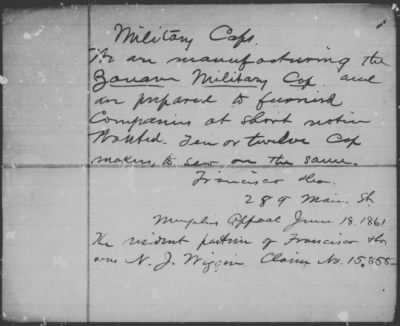 Military Caps.
We are manufacturing the
Zouave Military Cap and
are prepared to furnish
Companies at short notice
Wanted. Ten or twelve Cap
makers, to sew on the same.
Francisco & Co.
289 Main St.
Memphis Appeal June 18. 1861
The resident partner of Francisco & Co.
was N. J. Wiggin Claim No. 15.555-